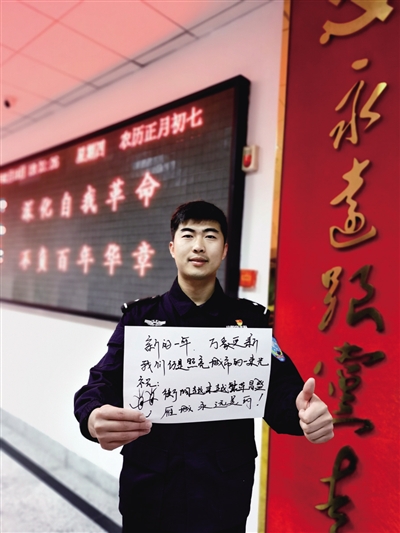 星期四 农历正月初七
深化自我革命
不负百年华章
永远跟党走
新的一年 万象更新
我们是照亮城市的一束光
祝：
衡阳越来越繁华昌盛
雁城永远美丽！